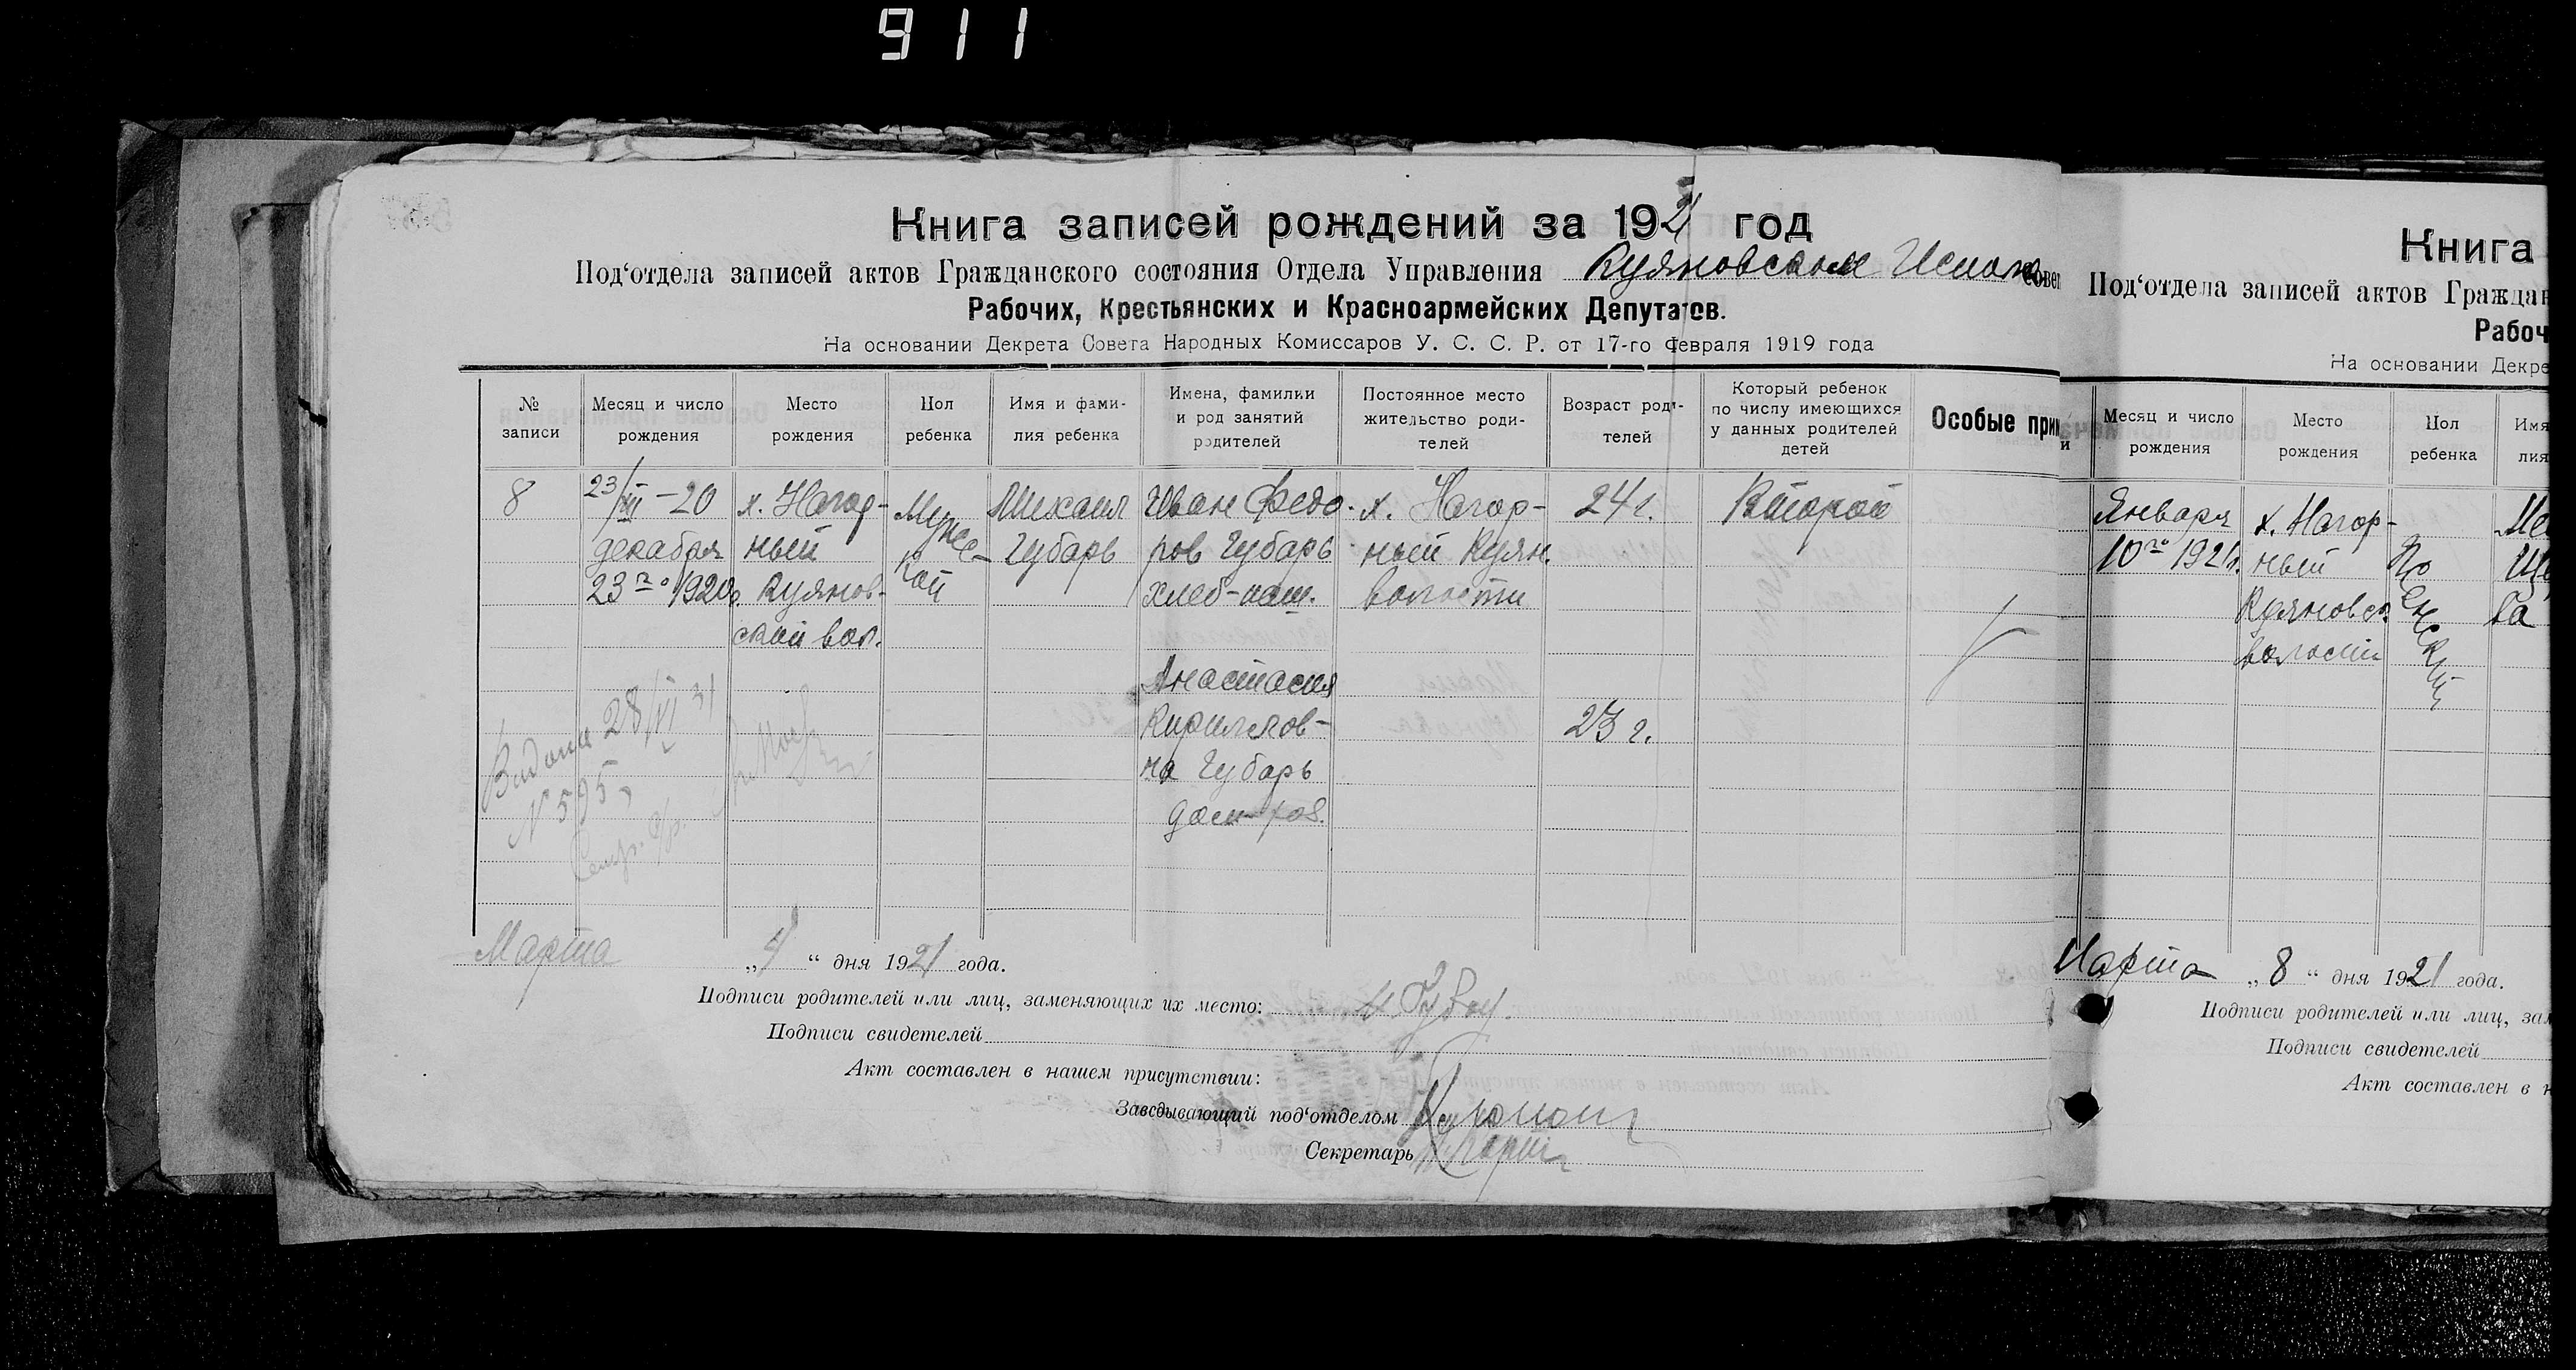 911
Книга записей рождений за 1921 год
Под‘отдела записей актов Гражданского состояния Отдела Управления Куяновском Испол Совет
Рабочих, Крестьянских и Красноармейских Депутатов.
На основании Декрета Совета Народных Комиссаров У. С. С. Р. от 17-го февраля 1919 года
№ записи
Месяц и число рождения
Место рождения
Пол ребенка
Имя и фами-лия ребенка
Имена, фамилии и род занятий родителей
Постоянное место жительство роди-телей
Возраст роди-телей
Который ребенок по числу имеющихся у данных родителей детей
Особые прим
8
23/III-20
декабря
23го 1920г.
х. Нагор-
ный
Куянов-
ской вол.
Мужес-
кой
Михаил
Губарь
Иван Федо-
ров Губарь
хлеб-паш.
Анастасия
Кириллов-
на Губарь
дом-хоз.
х. Нагор-
ный Куян.
волости
24 г.
23 г.
Второй
Видана 28/VI 31
N 595
Секр. с/р.
Марта „4“ дня 1921 года.
Подписи родителей или лиц, заменяющих их место:
Подписи свидетелей
Акт составлен в нашем присутствии:
Заведывающий под‘отделом
Секретарь
Книга
Под‘отдела записей актов Граждан
Рабоч
На основании Декре
и
Месяц и число рождения
Место рождения
Пол ребенка
Имя
лия
Января
10го 1921г.
х. Нагор-
ный
Куяновск.
волости
Женский
Ме
Ще
ва
Марта „8“ дня 1921 года.
Подписи родителей или лиц, зам
Подписи свидетелей
Акт составлен в н